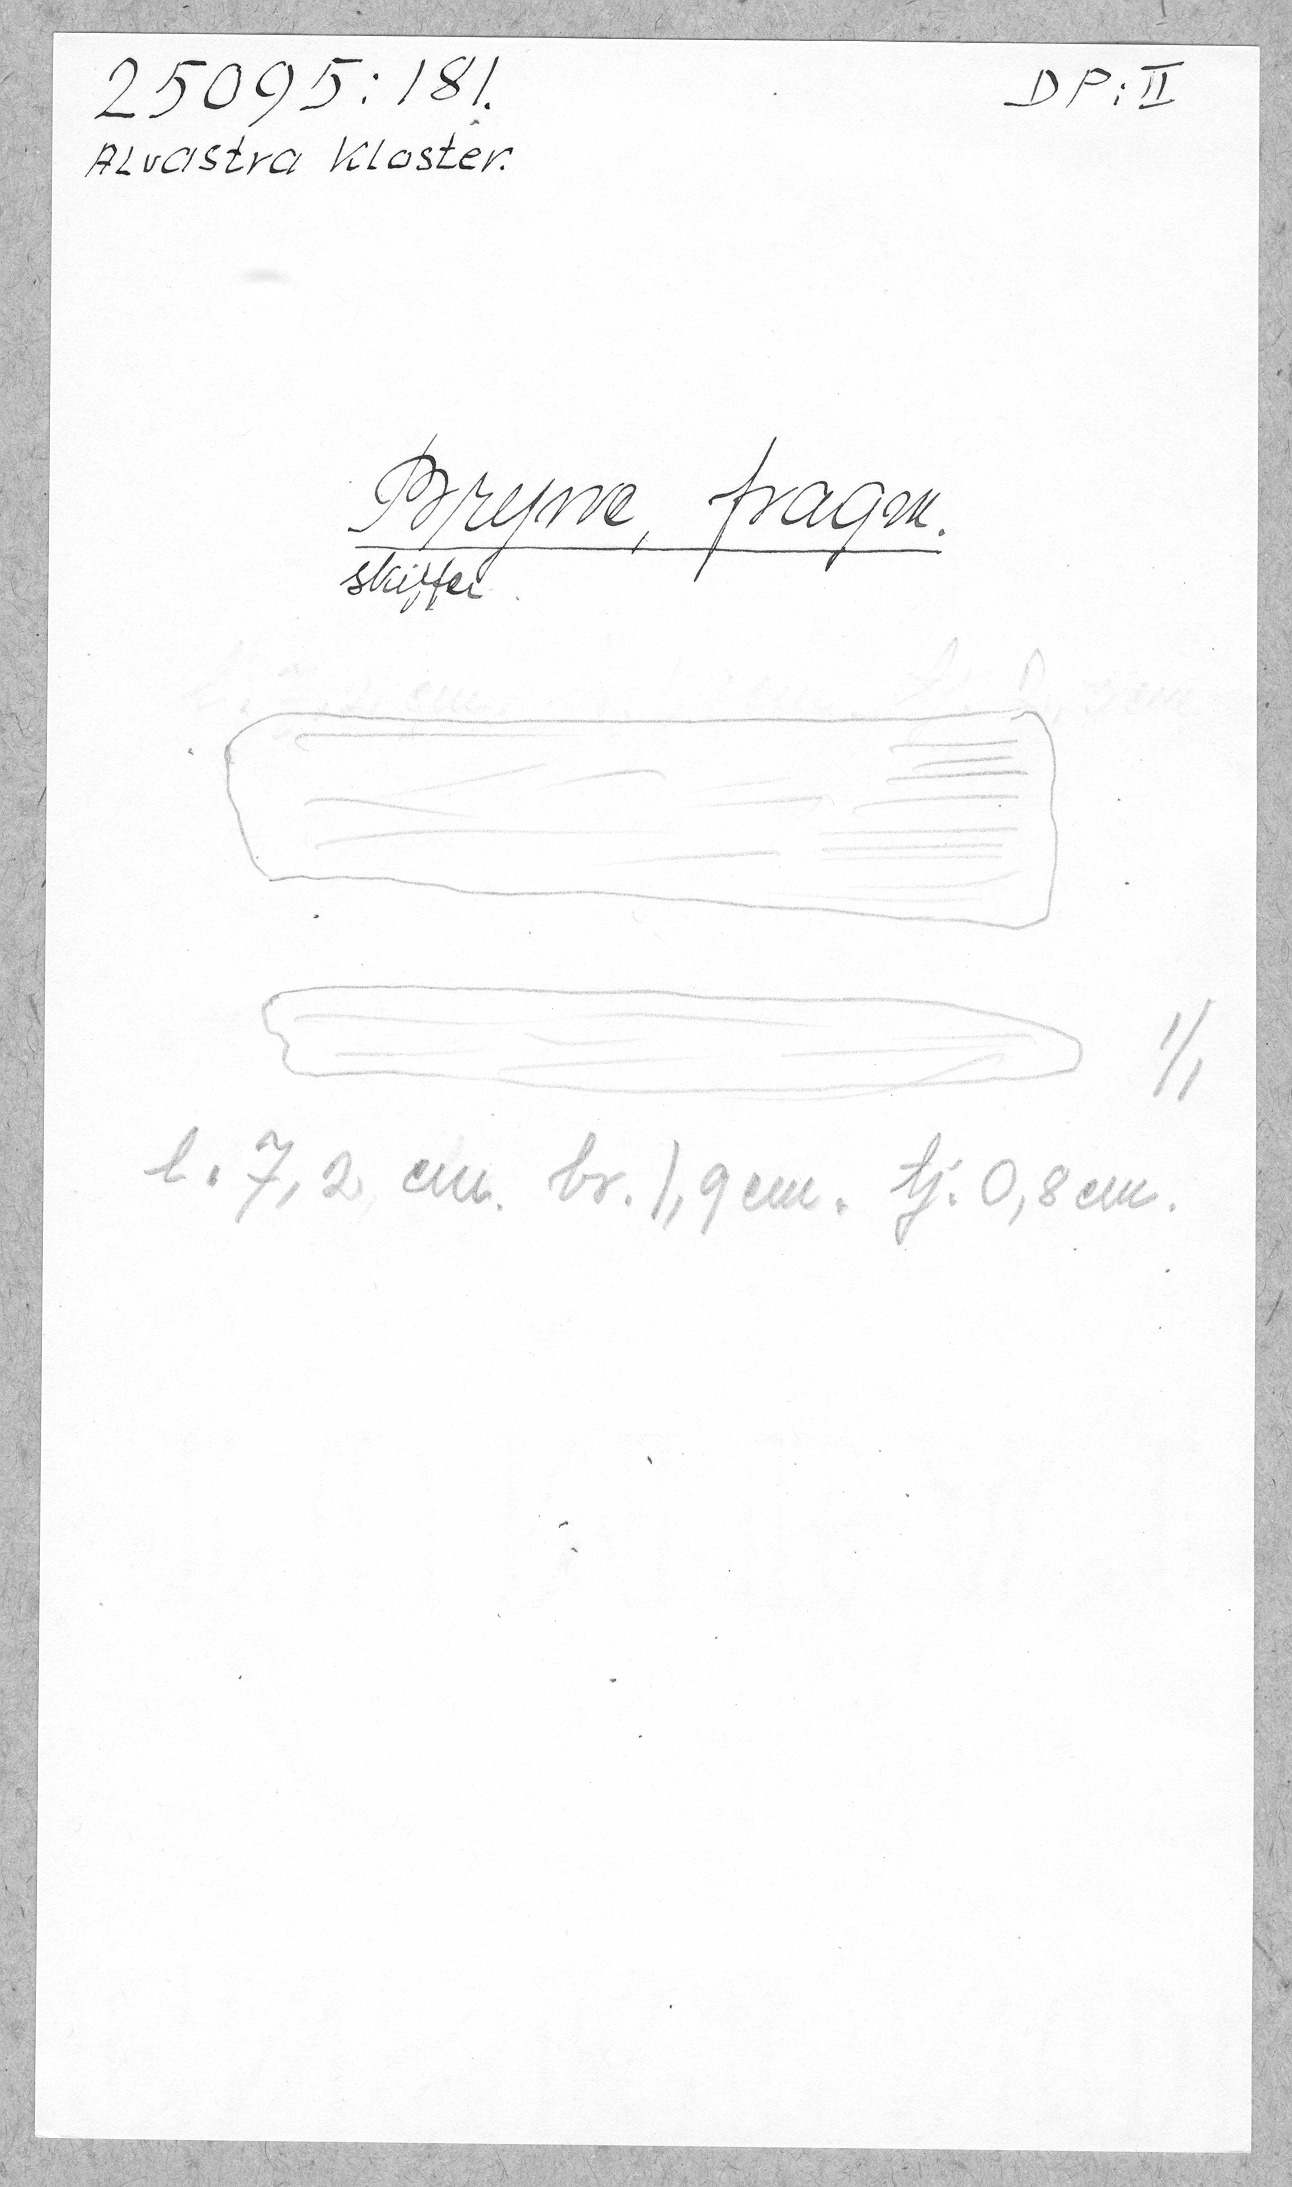 25095:181.
DP:II
Alvastra Kloster.
Bryne, fragm.
skiffer.
1/1
l. 7,2 cm. br. 1,9 cm. tj. 0,8 cm.